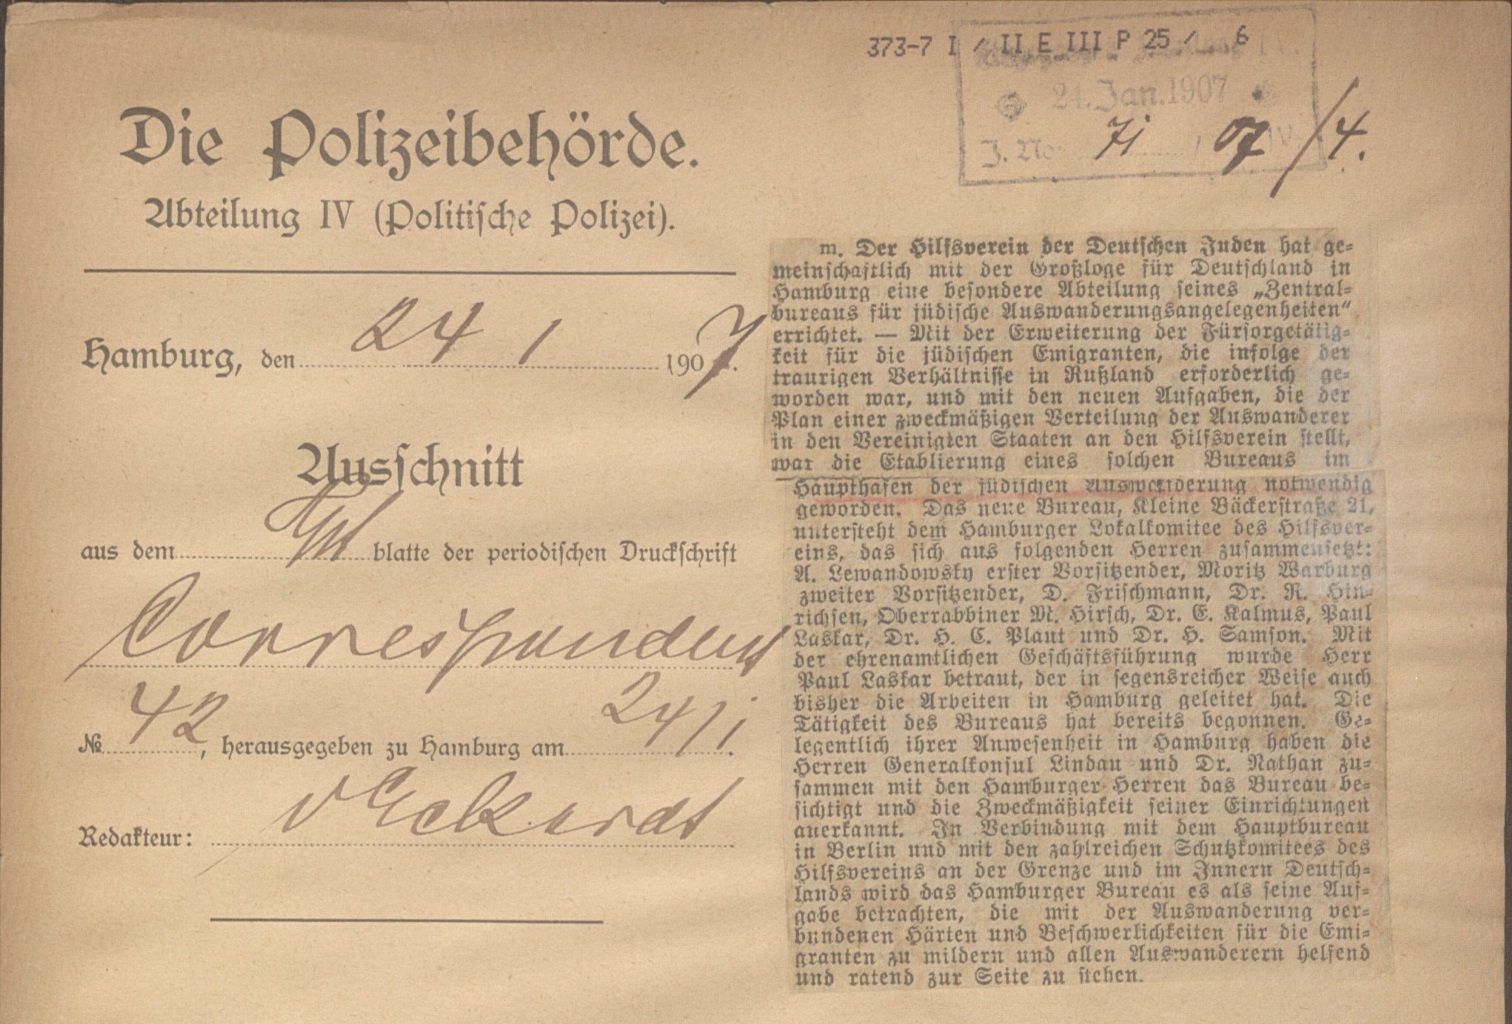 373-7 I / II E III P 25 / 6
24. Jan. 1907
J. No. 71 07 /4.
Die Polizeibehörde.
Abteilung IV (Politische Polizei).
Hamburg, den 24 1 1907.
Ausschnitt
aus dem blatte der periodischen Druckschrift
Correspondent
№ 42, herausgegeben zu Hamburg am 24/1.
Redakteur: v Eckardt
m. Der Hilfsverein der Deutschen Juden hat ge-
meinschaftlich mit der Großloge für Deutschland in
Hamburg eine besondere Abteilung seines „Zentral-
bureaus für jüdische Auswanderungsangelegenheiten“
errichtet. — Mit der Erweiterung der Fürsorgetätig-
keit für die jüdischen Emigranten, die infolge der
traurigen Verhältnisse in Rußland erforderlich ge-
worden war, und mit den neuen Aufgaben, die der
Plan einer zweckmäßigen Verteilung der Auswanderer
in den Vereinigten Staaten an den Hilfsverein stellt,
war die Etablierung eines solchen Bureaus im
Haupthafen der jüdischen Auswanderung notwendig
geworden. Das neue Bureau, Kleine Bäckerstraße 21,
untersteht dem Hamburger Lokalkomitee des Hilfsver-
eins, das sich aus folgenden Herren zusammensetzt:
A. Lewandowsky erster Vorsitzender, Moritz Warburg
zweiter Vorsitzender, D. Frischmann, Dr. R. Hin-
richsen, Oberrabbiner M. Hirsch, Dr. E. Kalmus, Paul
Laskar, Dr. H. C. Plaut und Dr. H. Samson. Mit
der ehrenamtlichen Geschäftsführung wurde Herr
Paul Laskar betraut, der in segensreicher Weise auch
bisher die Arbeiten in Hamburg geleitet hat. Die
Tätigkeit des Bureaus hat bereits begonnen. Ge-
legentlich ihrer Anwesenheit in Hamburg haben die
Herren Generalkonsul Lindau und Dr. Nathan zu-
sammen mit den Hamburger Herren das Bureau be-
sichtigt und die Zweckmäßigkeit seiner Einrichtungen
anerkannt. In Verbindung mit dem Hauptbureau
in Berlin und mit den zahlreichen Schutzkomitees des
Hilfsvereins an der Grenze und im Innern Deutsch-
lands wird das Hamburger Bureau es als seine Auf-
gabe betrachten, die mit der Auswanderung ver-
bundenen Härten und Beschwerlichkeiten für die Emi-
granten zu mildern und allen Auswanderern helfend
und ratend zur Seite zu stehen.